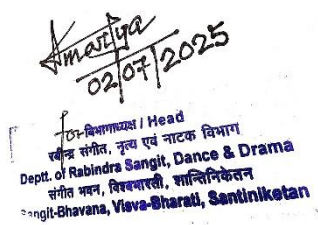 Amartya
02/07/2025
For विभागाध्यक्ष / Head
रवीन्द्र संगीत, नृत्य एवं नाटक विभाग
Deptt. of Rabindra Sangit, Dance & Drama
संगीत भवन, विश्वभारती, शान्तिनिकेतन
Sangit-Bhavana, Visva-Bharati, Santiniketan